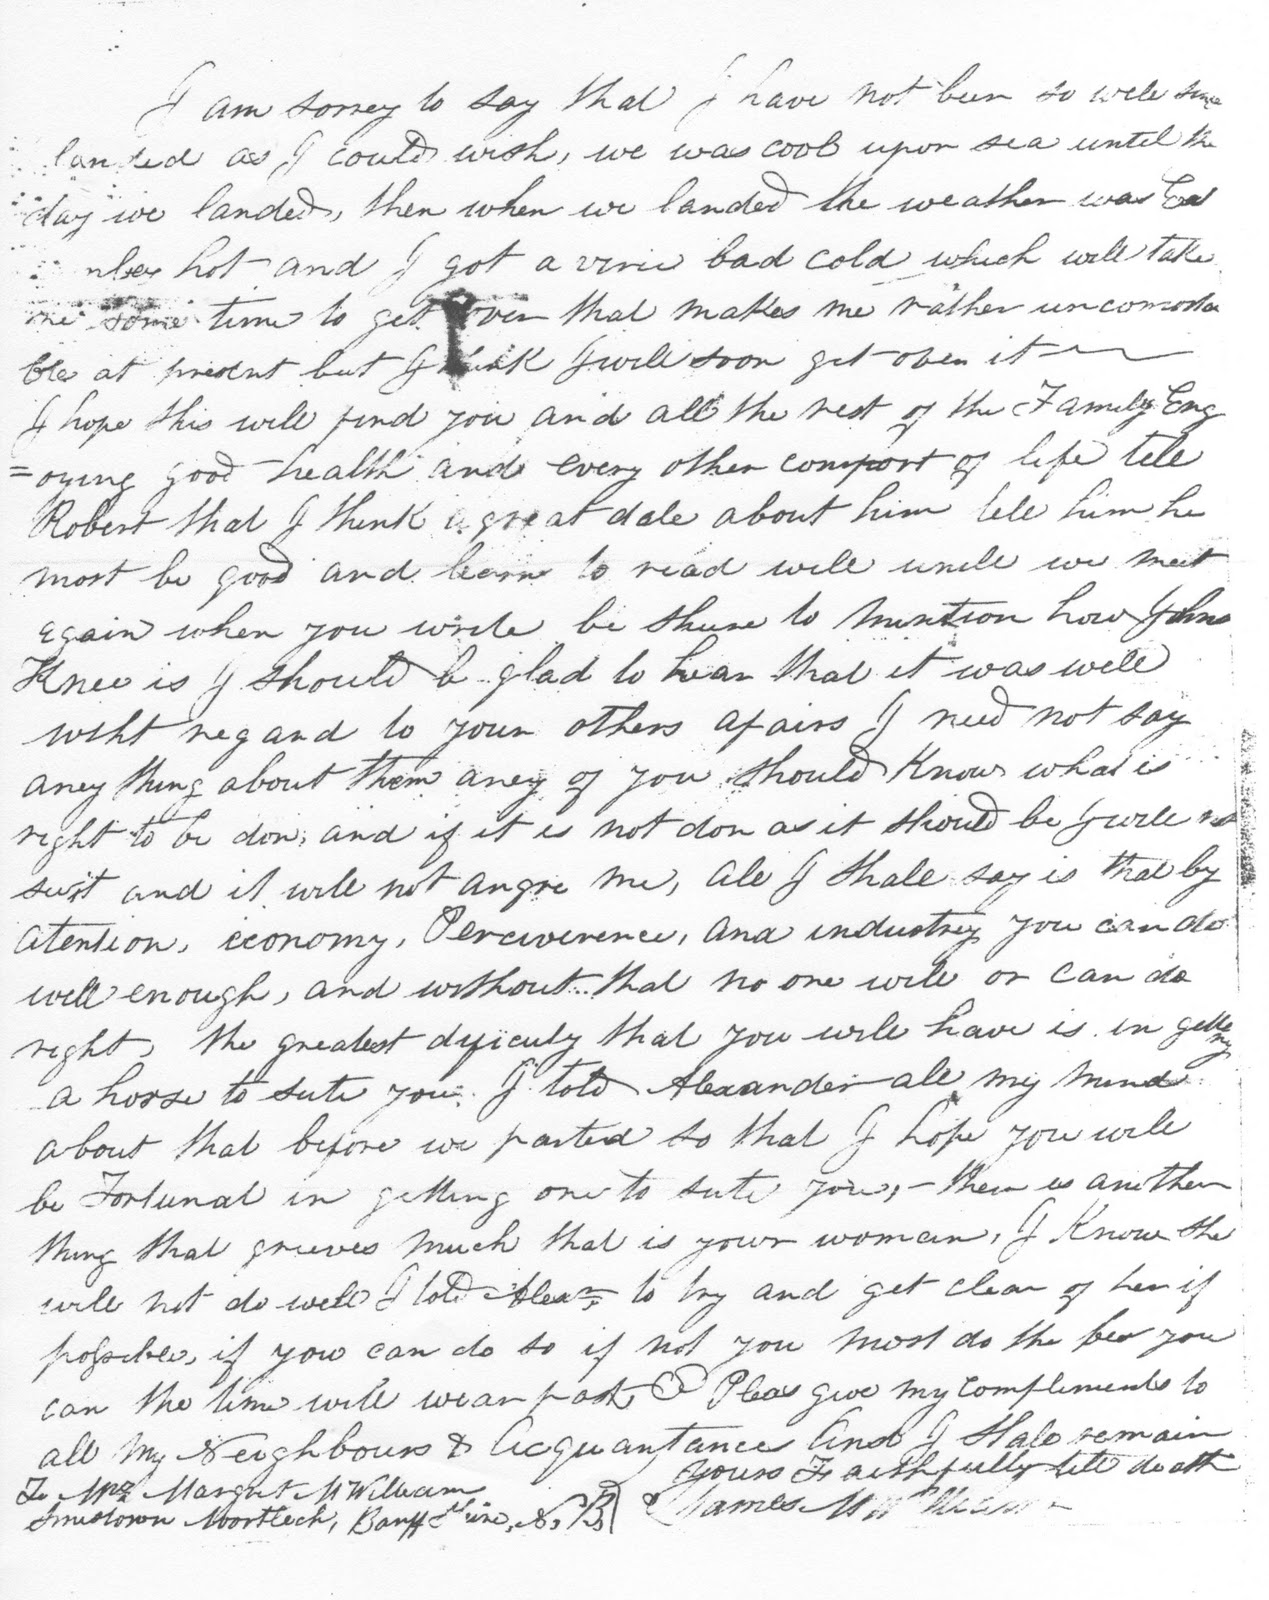 I am sorrey to say that I have not been so well since
landed as I could wish, we was cool upon sea until the
day we landed, then when we landed the weather was
hot and I got a verie bad cold which will take
me some time to get over that makes me rather uncomorta
ble at presdnt but I think I will soon get over it
I hope this will find you and all the rest of the Family Eng
=oying good health and every other comport of life tell
Robert that I think a great dale about him tell him he
most be good and learn to read well untill we meet
again when you write be shure to mention how Johns
Knee is I should be glad to hear that it was well
wiht regard to your others afairs I need not say
aney thing about them aney of you should Know what is
right to be don, and if it is not don as it should be I will not
see it and it will not angre me, all I shall say is that by
atention, economy, Perciverence, and industrey you can do
well enough, and without that no one will or can do
right, the greatest dificulty that you will have is in getting
a horse to sute you. I told Alexander all my mind
about that before we parted so that I hope you will
be Fortunat in getting one to sute you, - ther is another
thing that grieves much that is your woman, I Know she
will not do well I told Alexr to try and get clear of her if
possible, if you can do so if not you most do the best you
can the time will wear past, Pleas give my compliments to
all my Neighbours & Acquantances And I shall remain
yours Faithfully till death
James McWilliam
To Mrs Margret McWilliam
Mortlech, Banff Shire, N, B,